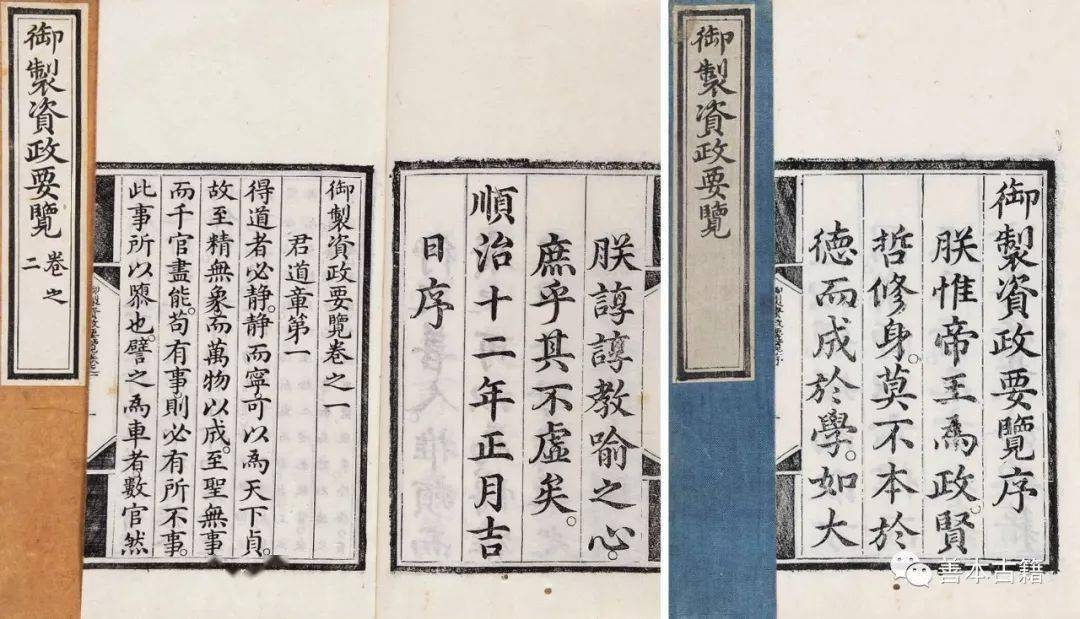 御製資政要覽序
朕惟帝王為政賢
哲修身。莫不本於
德而成於學。如大
御製資政要覽
朕諄諄教喻之心。
庶乎其不虛矣。
順治十二年正月吉
日序
御製資政要覽卷之一
君道章第一
得道者必静。静而寧。可以為天下貞。
故至精無象。而萬物以成。至聖無事
而千官盡能。苟有事。則必有所不事。
此事所以隳也。譬之為車者數官然
御製資政要覽 卷之二
善本古籍